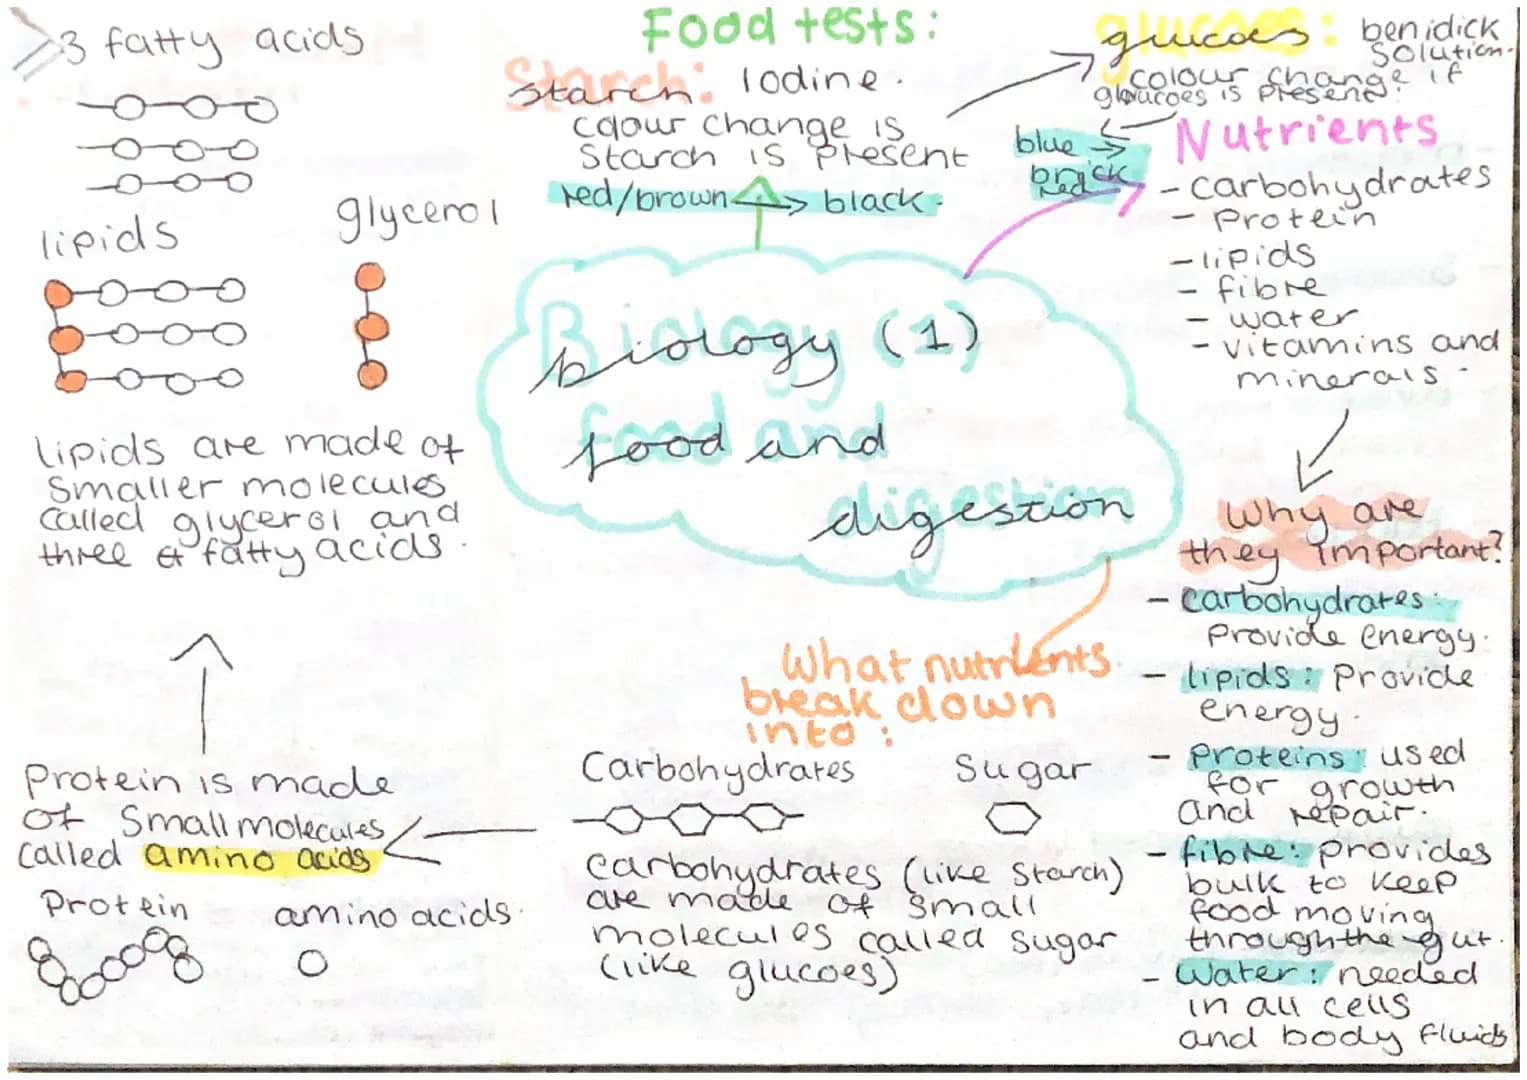 3 fatty acids
lipids
glycerol
lipids are made of
smaller molecules
called glycerol and
three fatty acids.
Protein is made
of small molecules
called amino acids
Protein
amino acids.
Food tests:
Starch: Iodine.
colour change is
starch is present
red/brown → black.
glucoes: benidick
solution.
colour change if
gloucoes is present.
blue →
brick
red
Nutrients
- carbohydrates
- Protein
- lipids
- fibre
- water
- vitamins and
minerals.
Biology (1)
food and
digestion
What nutrients
break down
into:
Carbohydrates
Sugar
Carbohydrates (like starch)
are made of small
molecules called sugar
(like glucoes)
Why are
they important?
- carbohydrates:
Provide energy.
- lipids: Provide
energy.
- Proteins: used
for growth
and repair.
- fibre: provides
bulk to keep
food moving
through the gut.
- Water: needed
in all cells
and body fluids